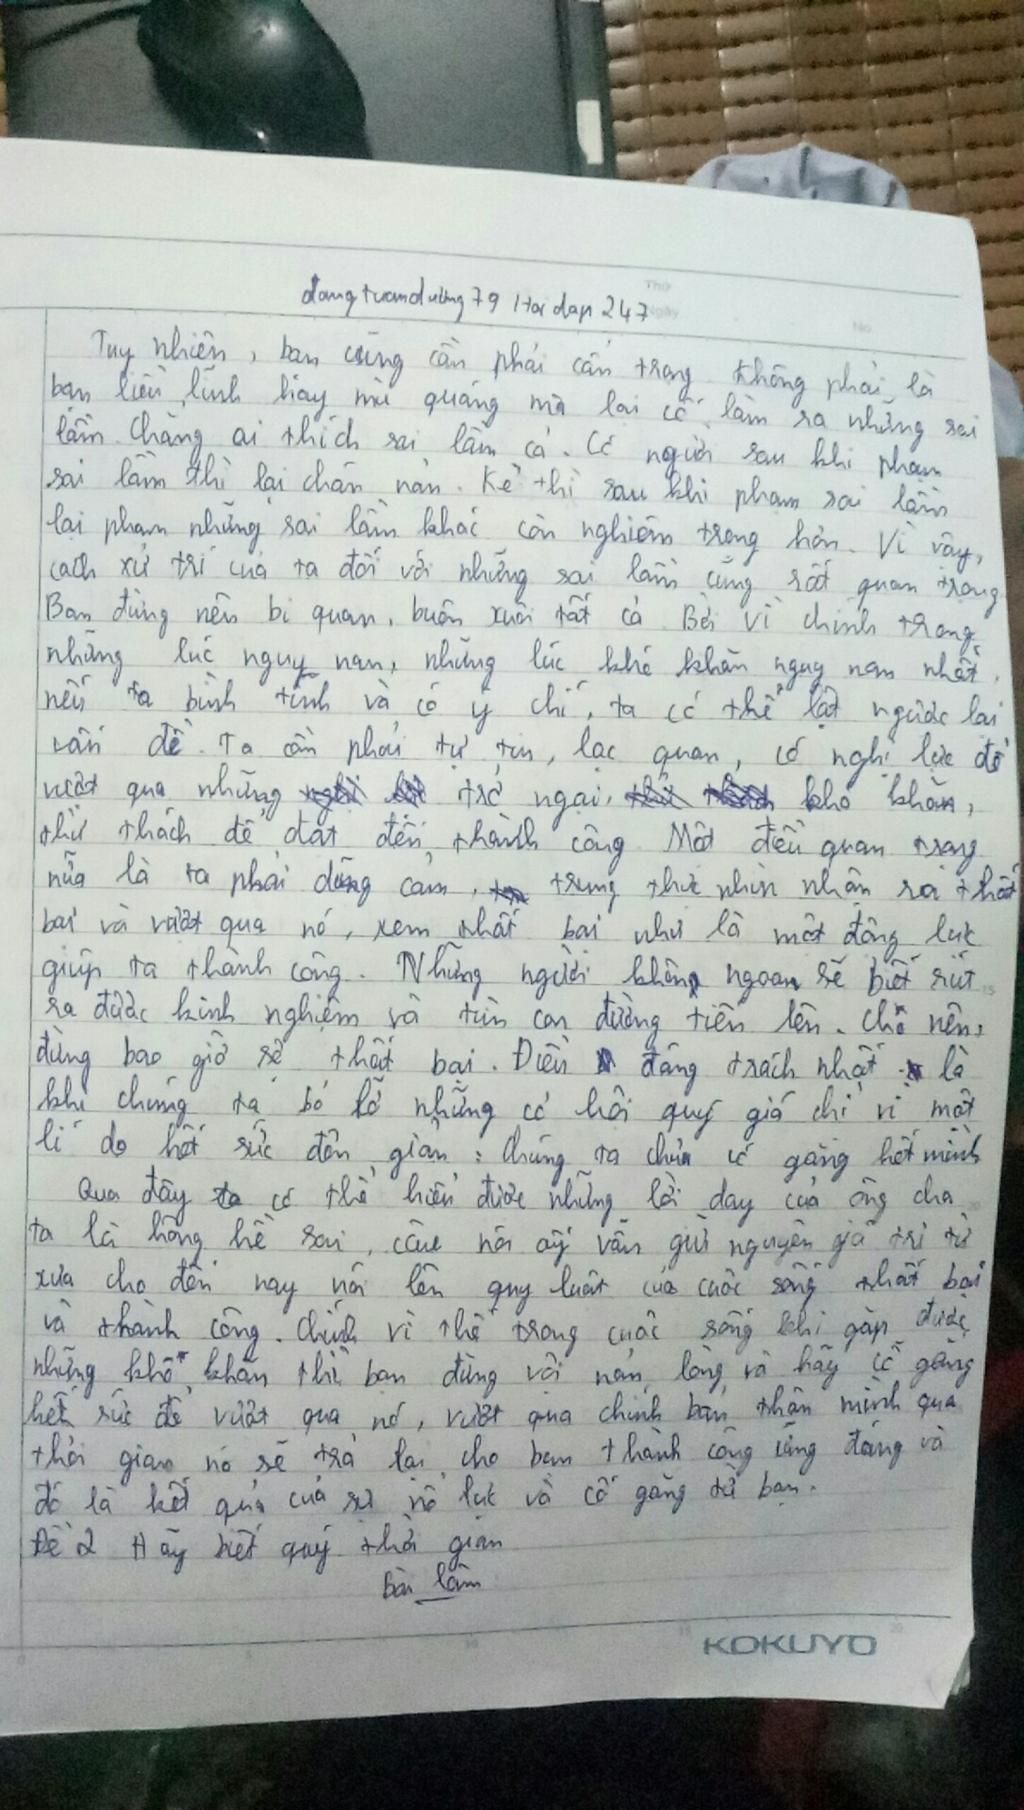 dangtuanduong79 Hoi dap 247
Thứ
Ngày
No
Tuy nhiên, bạn cũng cần phải cẩn trọng không phải là
bạn liều lĩnh hay mù quáng mà lại cố làm ra những sai
lầm. Chẳng ai thích sai lầm cả. Có người sau khi phạm
sai lầm thì lại chán nản. Kẻ thì sau khi phạm sai lầm
lại phạm những sai lầm khác còn nghiêm trọng hơn. Vì vậy,
cách xử trí của ta đối với những sai lầm cũng rất quan trọng
Bạn đừng nên bi quan, buôn xuôi tất cả. Bởi vì chính trong
những lúc nguy nan, những lúc khó khăn nguy nan nhất,
nếu ta bình tĩnh và có ý chí, ta có thể lật ngược lại
vấn đề. Ta cần phải tự tin, lạc quan, có nghị lực để
vượt qua những trở ngại, khó khăn,
thử thách để đạt đến thành công. Một điều quan trọng
nữa là ta phải dũng cảm, trung thực nhìn nhận sự thất
bại và vượt qua nó, xem thất bại như là một động lực
giúp ta thành công. Những người khôn ngoan sẽ biết rút
ra được kinh nghiệm và tìm con đường tiến lên. Cho nên,
đừng bao giờ sợ thất bại. Điều đáng trách nhất là
khi chúng ta bỏ lỡ những cơ hội quý giá chỉ vì một
lí do hết sức đơn giản: Chúng ta chưa cố gắng hết mình
Qua đây ta có thể hiểu được những lời dạy của ông cha
ta là hông hề sai, câu nói ấy vẫn giữ nguyên giá trị từ
xưa cho đến nay nói lên quy luật của cuộc sống thất bại
và thành công. Chính vì thế trong cuộc sống khi gặp được
những khó khăn thì bạn đừng vội nản lòng và hãy cố gắng
hết sức để vượt qua nó, vượt qua chính bản thân mình qua
thời gian nó sẽ trả lại cho bạn thành công xứng đáng và
đó là kết quả của sự nỗ lực và cố gắng từ bạn.
Đề 2 Hãy biết quý thời gian
Bài làm
KOKUYO